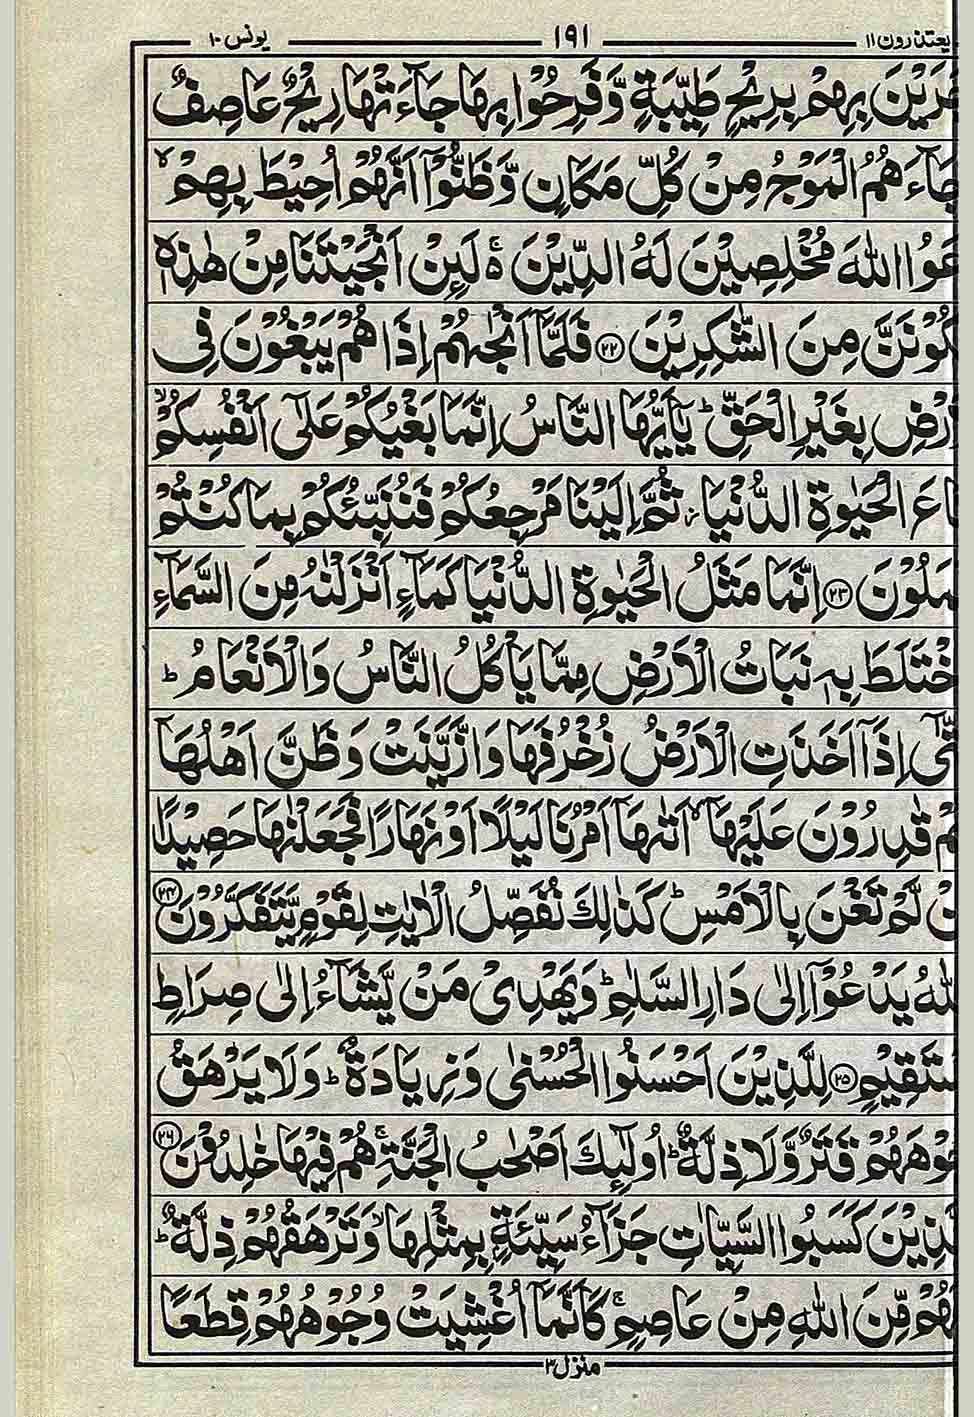 یعتذرون ۱۱ ۱۹۱ یونس ۱۰
جَرَيْنَ بِهِمْ بِرِيْحٍ طَيِّبَةٍ وَّفَرِحُوْا بِهَا جَآءَتْهَا رِيْحٌ عَاصِفٌ
جَآءَهُمُ الْمَوْجُ مِنْ كُلِّ مَكَانٍ وَّظَنُّوْۤا اَنَّهُمْ اُحِيْطَ بِهِمْ ۙ
عَوُا اللّٰهَ مُخْلِصِيْنَ لَهُ الدِّيْنَ ۚ۬ لَىِٕنْ اَنْجَيْتَنَا مِنْ هٰذِهٖ
كُوْنَنَّ مِنَ الشّٰكِرِيْنَ ﴿۲۲﴾ فَلَمَّاۤ اَنْجٰىهُمْ اِذَا هُمْ يَبْغُوْنَ فِى
اَرْضِ بِغَيْرِ الْحَقِّ ؕ يٰۤاَيُّهَا النَّاسُ اِنَّمَا بَغْيُكُمْ عَلٰٓى اَنْفُسِكُمْ ۙ
اعَ الْحَيٰوةِ الدُّنْيَا ؗ ثُمَّ اِلَيْنَا مَرْجِعُكُمْ فَنُنَبِّئُكُمْ بِمَا كُنْتُمْ
مَلُوْنَ ﴿۲۳﴾ اِنَّمَا مَثَلُ الْحَيٰوةِ الدُّنْيَا كَمَآءٍ اَنْزَلْنٰهُ مِنَ السَّمَآءِ
خْتَلَطَ بِهٖ نَبَاتُ الْاَرْضِ مِمَّا يَاْكُلُ النَّاسُ وَالْاَنْعَامُ ؕ
تّٰۤى اِذَاۤ اَخَذَتِ الْاَرْضُ زُخْرُفَهَا وَازَّيَّنَتْ وَظَنَّ اَهْلُهَاۤ
هُمْ قٰدِرُوْنَ عَلَيْهَاۤ ۙ اَتٰىهَاۤ اَمْرُنَا لَيْلًا اَوْ نَهَارًا فَجَعَلْنٰهَا حَصِيْدًا
نْ لَّمْ تَغْنَ بِالْاَمْسِ ؕ كَذٰلِكَ نُفَصِّلُ الْاٰيٰتِ لِقَوْمٍ يَّتَفَكَّرُوْنَ ﴿۲۴﴾
للّٰهُ يَدْعُوْۤا اِلٰى دَارِ السَّلٰمِ ؕ وَيَهْدِىْ مَنْ يَّشَآءُ اِلٰى صِرَاطٍ
سْتَقِيْمٍ ﴿۲۵﴾ لِلَّذِيْنَ اَحْسَنُوا الْحُسْنٰى وَزِيَادَةٌ ؕ وَلَا يَرْهَقُ
جُوْهَهُمْ قَتَرٌ وَّلَا ذِلَّةٌ ؕ اُولٰٓىِٕكَ اَصْحٰبُ الْجَنَّةِ ۚ هُمْ فِيْهَا خٰلِدُوْنَ ﴿۲۶﴾
لَّذِيْنَ كَسَبُوا السَّيِّاٰتِ جَزَآءُ سَيِّئَةٍۭ بِمِثْلِهَا ۙ وَتَرْهَقُهُمْ ذِلَّةٌ ؕ
لَهُمْ مِّنَ اللّٰهِ مِنْ عَاصِمٍ ۚ كَاَنَّمَاۤ اُغْشِيَتْ وُجُوْهُهُمْ قِطَعًا
منزل ۳